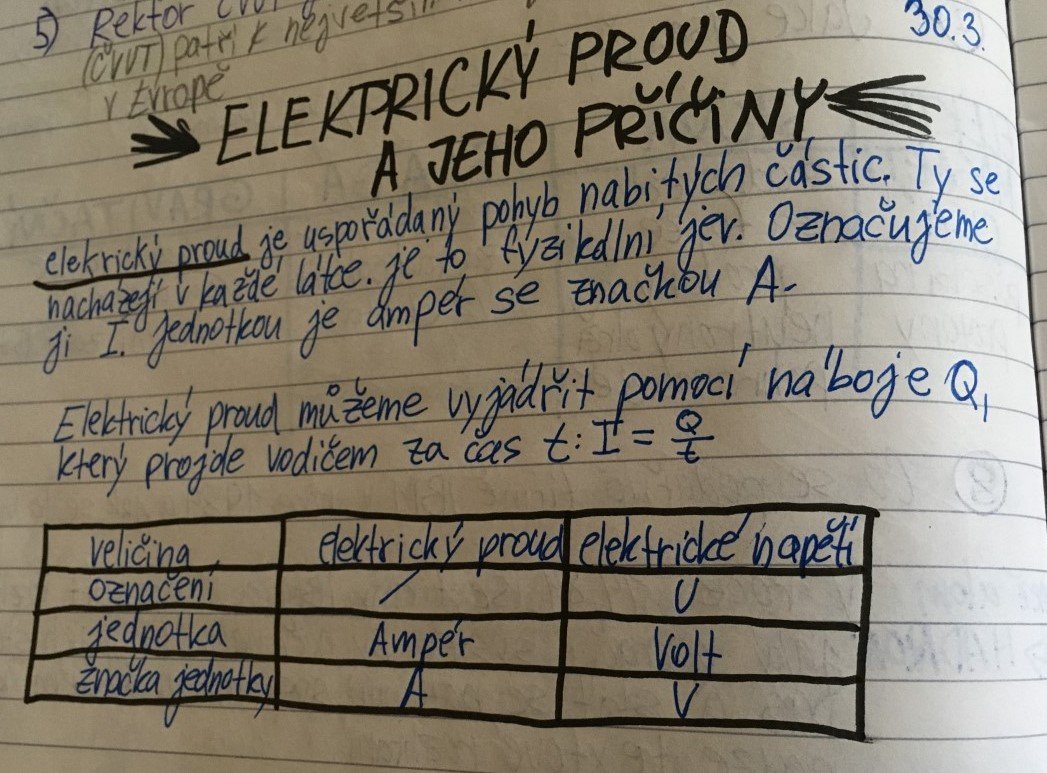 5) Rektor ČVUT
(ČVUT) patří k největším
v Evropě
30.3.
ELEKTRICKÝ PROUD
A JEHO PŘÍČINY
elekrický proud je uspořádaný pohyb nabitých částic. Ty se
nachazejí v každé látce. je to fyzikální jev. Označujeme
ji I. jednotkou je ampér se značkou A.
Elektrický proud můžeme vyjádřit pomocí náboje Q,
který projde vodičem za čas t: I = Q/t
veličina elektrický proud elektrické napětí
označení / U
jednotka Ampér Volt
značka jednotky A V